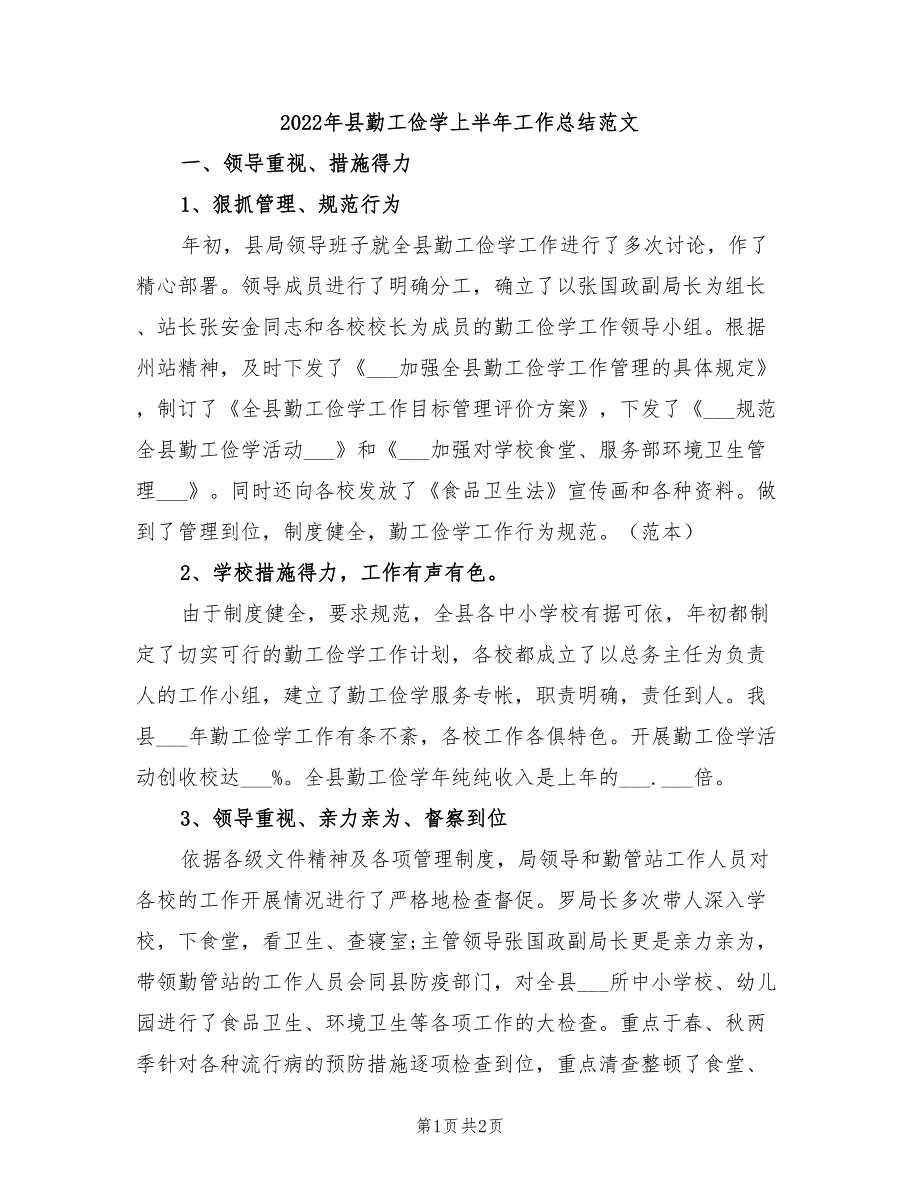 2022年县勤工俭学上半年工作总结范文
一、领导重视、措施得力
1、狠抓管理、规范行为
年初，县局领导班子就全县勤工俭学工作进行了多次讨论，作了
精心部署。领导成员进行了明确分工，确立了以张国政副局长为组长
、站长张安金同志和各校校长为成员的勤工俭学工作领导小组。根据
州站精神，及时下发了《___加强全县勤工俭学工作管理的具体规定》
，制订了《全县勤工俭学工作目标管理评价方案》，下发了《___规范
全县勤工俭学活动___》和《___加强对学校食堂、服务部环境卫生管
理___》。同时还向各校发放了《食品卫生法》宣传画和各种资料。做
到了管理到位，制度健全，勤工俭学工作行为规范。（范本）
2、学校措施得力，工作有声有色。
由于制度健全，要求规范，全县各中小学校有据可依，年初都制
定了切实可行的勤工俭学工作计划，各校都成立了以总务主任为负责
人的工作小组，建立了勤工俭学服务专帐，职责明确，责任到人。我
县___年勤工俭学工作有条不紊，各校工作各俱特色。开展勤工俭学活
动创收校达___%。全县勤工俭学年纯纯收入是上年的___.___倍。
3、领导重视、亲力亲为、督察到位
依据各级文件精神及各项管理制度，局领导和勤管站工作人员对
各校的工作开展情况进行了严格地检查督促。罗局长多次带人深入学
校，下食堂，看卫生、查寝室;主管领导张国政副局长更是亲力亲为，
带领勤管站的工作人员会同县防疫部门，对全县___所中小学校、幼儿
园进行了食品卫生、环境卫生等各项工作的大检查。重点于春、秋两
季针对各种流行病的预防措施逐项检查到位，重点清查整顿了食堂、
第1页共2页